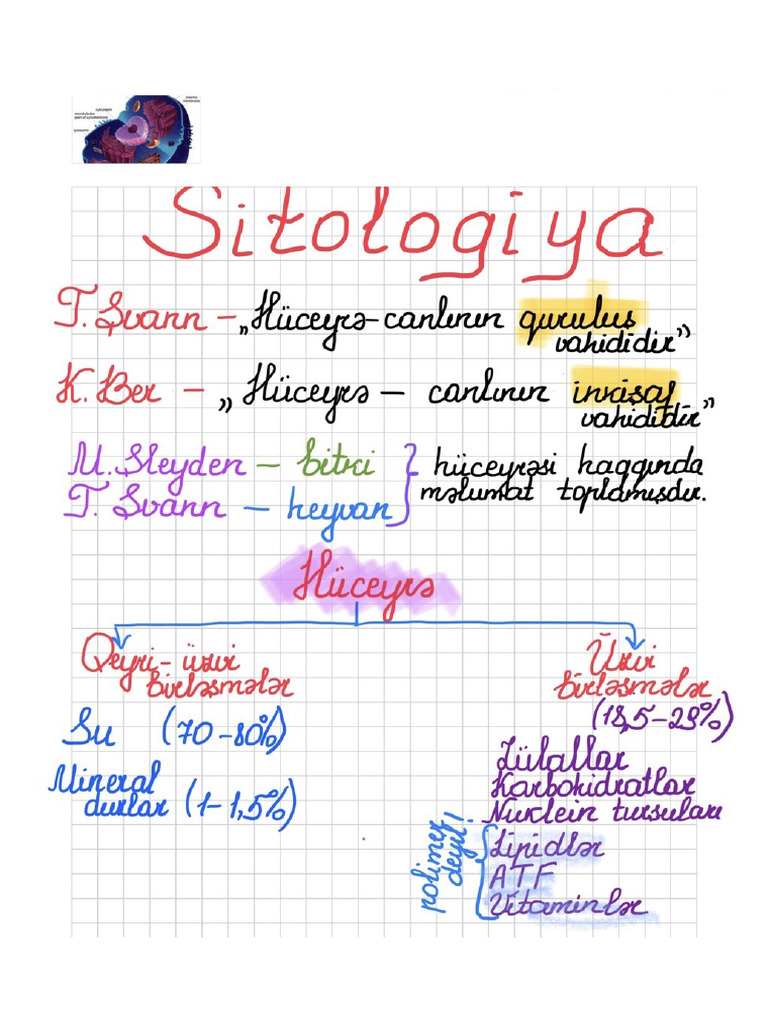 plasma
membrane
cytoplasm
microtubules
(part of cytoskeleton)
lysosome
Sitologiya
T. Şvann – „Hüceyrə-canlının quruluş
vahididir”
K. Ber – „Hüceyrə – canlının inkişaf
vahididir”
M. Şleyden – bitki
T. Şvann – heyvan
hüceyrəsi haqqında
məlumat toplamışdır.
Hüceyrə
Qeyri-üzvi
birləşmələr
Su (70-80%)
Mineral
duzlar (1-1,5%)
Üzvi
birləşmələr
(18,5-29%)
Zülallar
Karbohidratlar
Nuklein turşuları
polimer
deyil!
Lipidlər
ATF
Vitaminlər